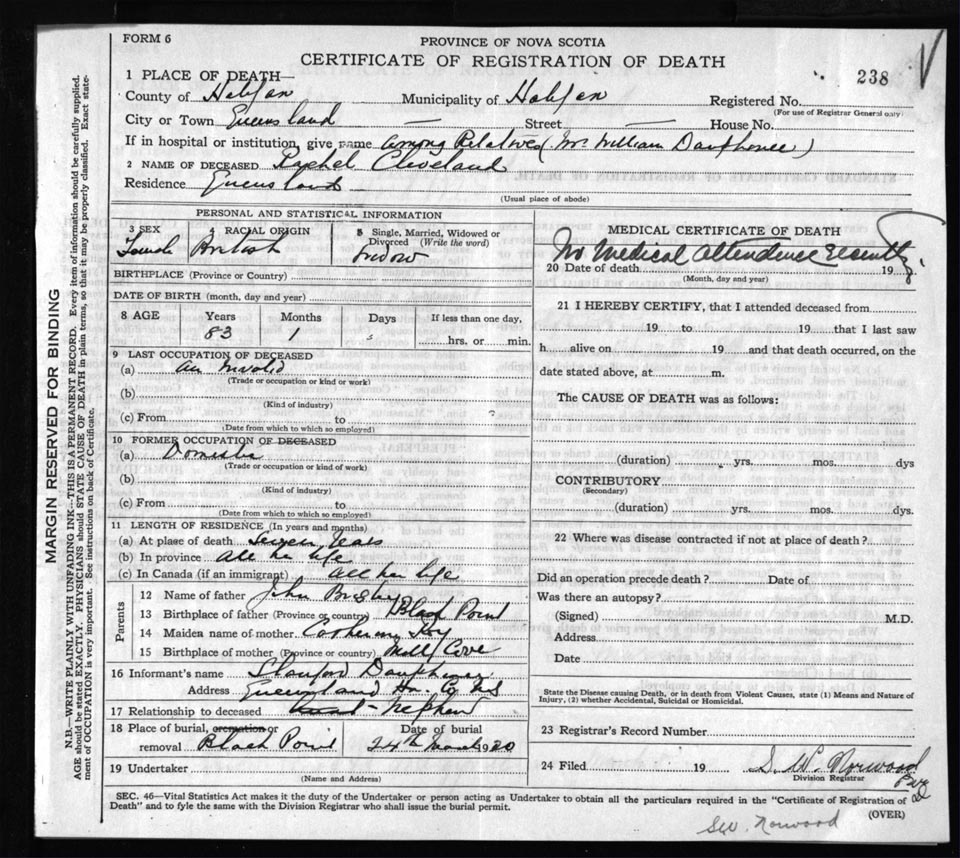 FORM 6
PROVINCE OF NOVA SCOTIA
CERTIFICATE OF REGISTRATION OF DEATH
238
1 PLACE OF DEATH—
County of Municipality of Registered No.
(For use of Registrar General only)
City or Town Queensland — Street — House No.
If in hospital or institution, give name among Relatives (Mr. William Dauphinee)
2 NAME OF DECEASED Rachel Cleveland
Residence Queensland
(Usual place of abode)
PERSONAL AND STATISTICAL INFORMATION
3 SEX 4 RACIAL ORIGIN 5 Single, Married, Widowed or
Divorced (Write the word)
British widow
BIRTHPLACE (Province or Country)
DATE OF BIRTH (month, day and year)
8 AGE Years Months Days If less than one day,
83 1 hrs. or min.
9 LAST OCCUPATION OF DECEASED
(a) an Invalid
(Trade or occupation or kind or work)
(b)
(Kind of industry)
(c) From to
(Date from which to which so employed)
10 FORMER OCCUPATION OF DECEASED
(a) Domestic
(Trade or occupation or kind of work)
(b)
(Kind of industry)
(c) From to
(Date from which to which so employed)
11 LENGTH OF RESIDENCE (In years and months)
(a) At place of death Seven Years
(b) In province all her life
(c) In Canada (if an immigrant) all her life
Parents
12 Name of father John
13 Birthplace of father (Province or country) Black Point
14 Maiden name of mother
15 Birthplace of mother (Province or country) Mill Cove
16 Informant's name Stanford Dauphinee
Address Queensland Hx. Co NS
17 Relationship to deceased Nephew
18 Place of burial, cremation or Date of burial
removal Black Point 24th 1930
19 Undertaker
(Name and Address)
MEDICAL CERTIFICATE OF DEATH
No Medical Attendence Recently
20 Date of death 19
(Month, day and year)
21 I HEREBY CERTIFY, that I attended deceased from
19 to 19 that I last saw
h alive on 19 and that death occurred, on the
date stated above, at m.
The CAUSE OF DEATH was as follows:
(duration) yrs. mos. dys
CONTRIBUTORY
(Secondary)
(duration) yrs. mos. dys.
22 Where was disease contracted if not at place of death?
Did an operation precede death? Date of
Was there an autopsy?
(Signed) M.D.
Address
Date
State the Disease causing Death, or in death from Violent Causes, state (1) Means and Nature of
Injury, (2) whether Accidental, Suicidal or Homicidal.
23 Registrar's Record Number
24 Filed 19 S. W. Norwood
Division Registrar
SEC. 46—Vital Statistics Act makes it the duty of the Undertaker or person acting as Undertaker to obtain all the particulars required in the "Certificate of Registration of
Death" and to fyle the same with the Division Registrar who shall issue the burial permit.
(OVER)
S.W. Norwood
MARGIN RESERVED FOR BINDING
N.B.—WRITE PLAINLY WITH UNFADING INK—THIS IS A PERMANENT RECORD. Every item of information should be carefully supplied.
AGE should be stated EXACTLY. PHYSICIANS should STATE CAUSE OF DEATH in plain terms, so that it may be properly classified. Exact state-
ment of OCCUPATION is very important. See instructions on back of Certificate.